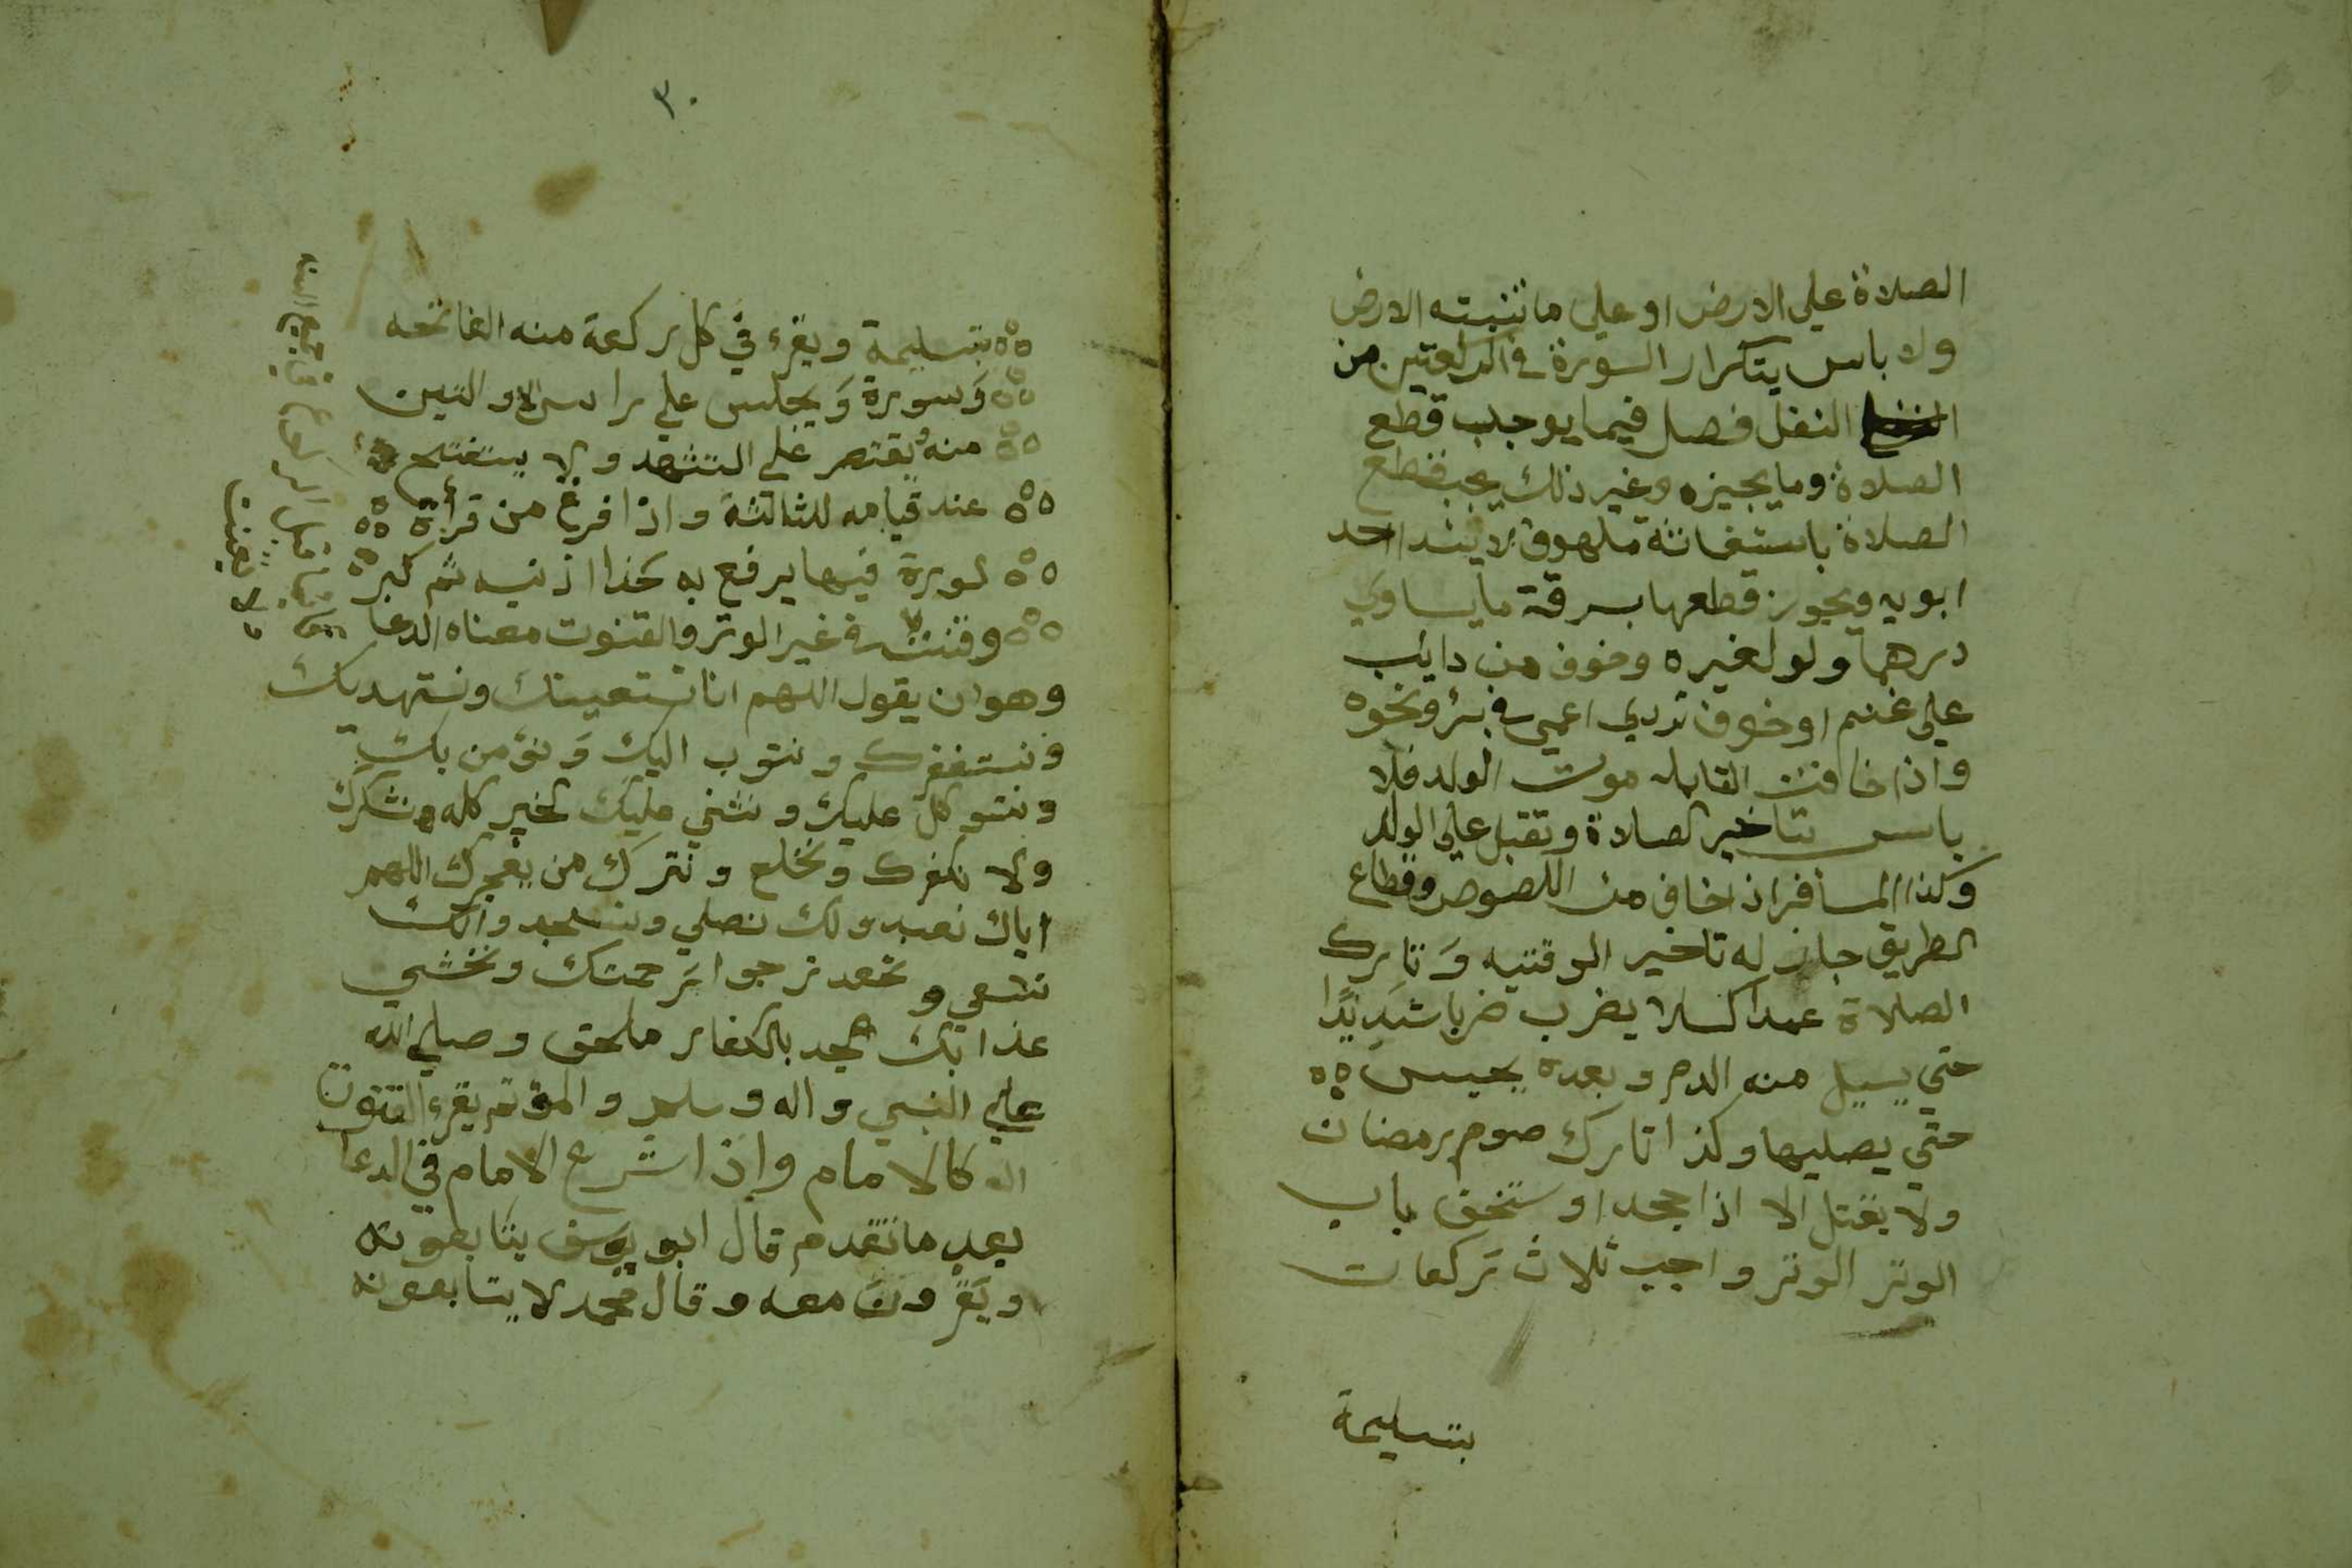 الصلاة علي الارض او علي ما تنبته الارض
ولا باس بتكرار السورة في الركعتين من
النفل فصل فيما يوجب قطع
الصلاة وما يجيزه وغير ذلك يجب قطع
الصلاة باستغاثة ملهوف لا بندا احد
ابويه ويجوز قطعها بسرقة ما يساوي
درهما ولو لغيره وخوف من دايب
علي غنم او خوف تردي اعمي في بئر ونحوه
واذا خافت القابله موت الولد فلا
باس بتاخير الصلاة وتقبل علي الولد
وكذا المسافر اذا خاف من اللصوص وقطاع
الطريق جاز له تاخير الوقتيه وَتارك
الصلاة عمدا كسلا يضرب ضربا شديدًا
حتي يسيل منه الدم وبعده يحبس
حتي يصليها وكذا تارك صوم رمضان
ولا يقتل الا اذا جحد او ستخف باب
الوتر الوتر واجب ثلاث ركعات
بتسليمة
٣٠
بتسليمة ويقرء في كل ركعة منه الفاتحه
وَسورة وَيجلس علي راس الاوليين
منه وُيقتصر علي التشهد ولا يستفتح
عند قيامه للثالثة واذا فرغ من قرأة
لسورة فيها يرفع يه حذا اذنيه ثم كبر
وقنت في غير الوتر والقنوت معناه الدعا
وهو ان يقول اللهم انا نستعينك ونستهديك
ونستغفرك ونتوب اليك وَنؤمن بك
ونتوكل عليك ونثني عليك الخير كله ونشكرك
ولا نكفرك ونخلع ونترك من يفجرك اللهم
اياك نعبد ولك نصلي ونسجد واليك
نسعي ونحفد نرجوا رحمتك ونخشي
عذابك الجد بالكفار ملحق وصلي الله
علي النبي واله وسلم والمؤتم يقرء القنوت
كالامام واذا شرع الامام في الدعا
بعد ما تقدم قال ابو يوسف يتابعونه
ويَقرونَ معه وقال محمد لا يتابعونه